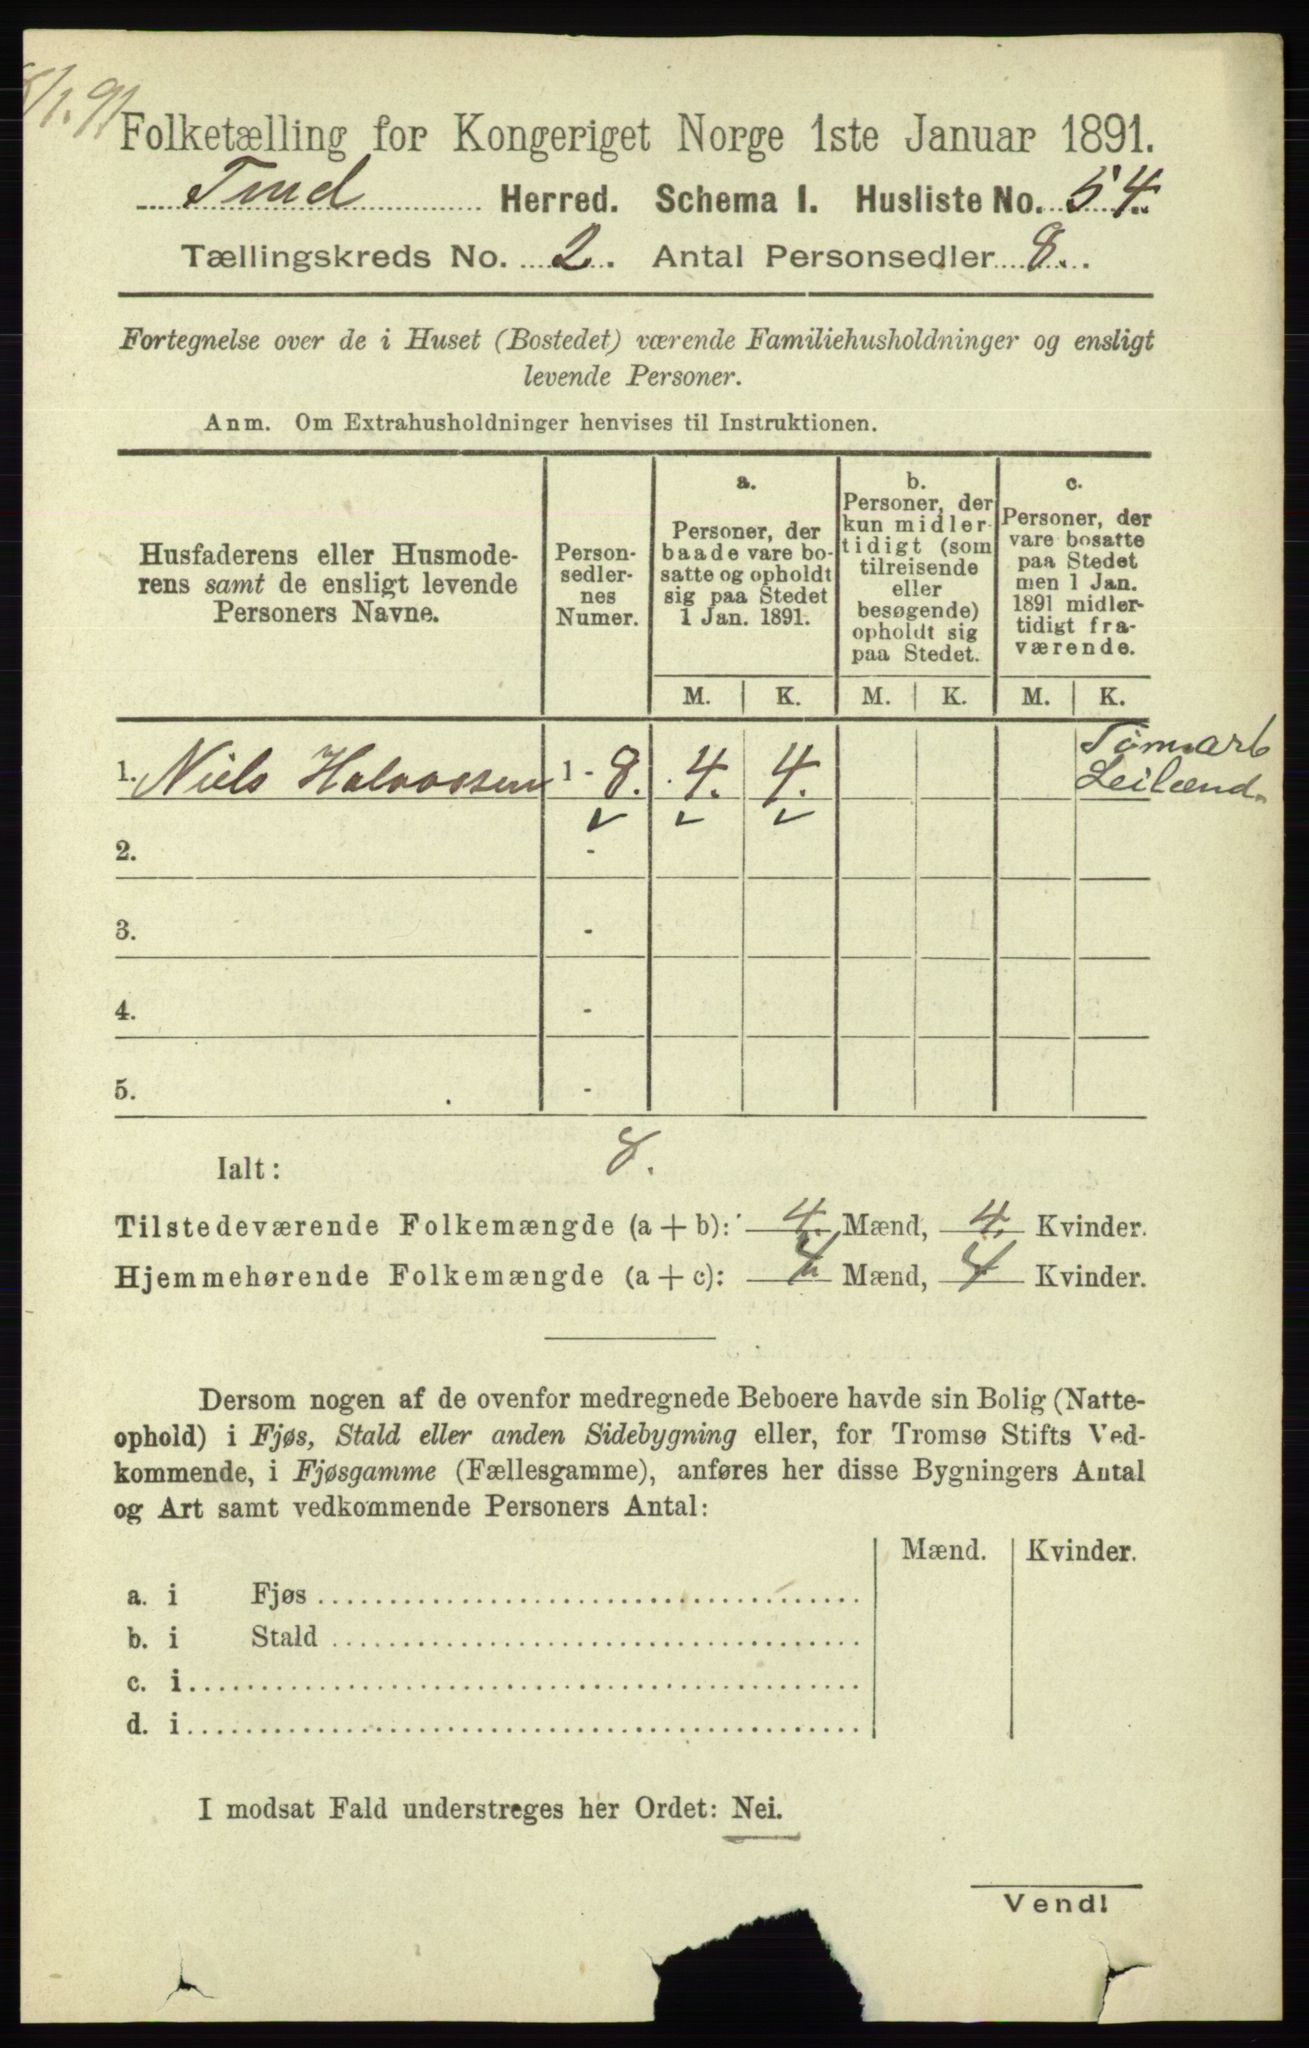 /1.91
Folketælling for Kongeriget Norge 1ste Januar 1891.
Tind Herred. Schema I. Husliste No. 54.
Tællingskreds No. 2. Antal Personsedler 8.
Fortegnelse over de i Huset (Bostedet) værende Familiehusholdninger og ensligt
levende Personer.
Anm. Om Extrahusholdninger henvises til Instruktionen.
Husfaderens eller Husmode-
rens samt de ensligt levende
Personers Navne.
Person-
sedler-
nes
Numer.
a.
Personer, der
baade vare bo-
satte og opholdt
sig paa Stedet
1 Jan. 1891.
b.
Personer, der
kun midler-
tidigt (som
tilreisende
eller
besøgende)
opholdt sig
paa Stedet.
c.
Personer, der
vare bosatte
paa Stedet
men 1 Jan.
1891 midler-
tidigt fra-
værende.
M. K. M. K. M. K.
1. Niels Halvorsen 1 - 8. 4. 4. Tømarb
Leilænd.
2. -
3. -
4. -
5. -
Ialt: 8.
Tilstedeværende Folkemængde (a + b): 4. Mænd, 4. Kvinder.
Hjemmehørende Folkemængde (a + c): 4 Mænd, 4 Kvinder.
Dersom nogen af de ovenfor medregnede Beboere havde sin Bolig (Natte-
ophold) i Fjøs, Stald eller anden Sidebygning eller, for Tromsø Stifts Ved-
kommende, i Fjøsgamme (Fællesgamme), anføres her disse Bygningers Antal
og Art samt vedkommende Personers Antal:
Mænd. Kvinder.
a. i Fjøs
b. i Stald
c. i
d. i
I modsat Fald understreges her Ordet: Nei.
Vend!